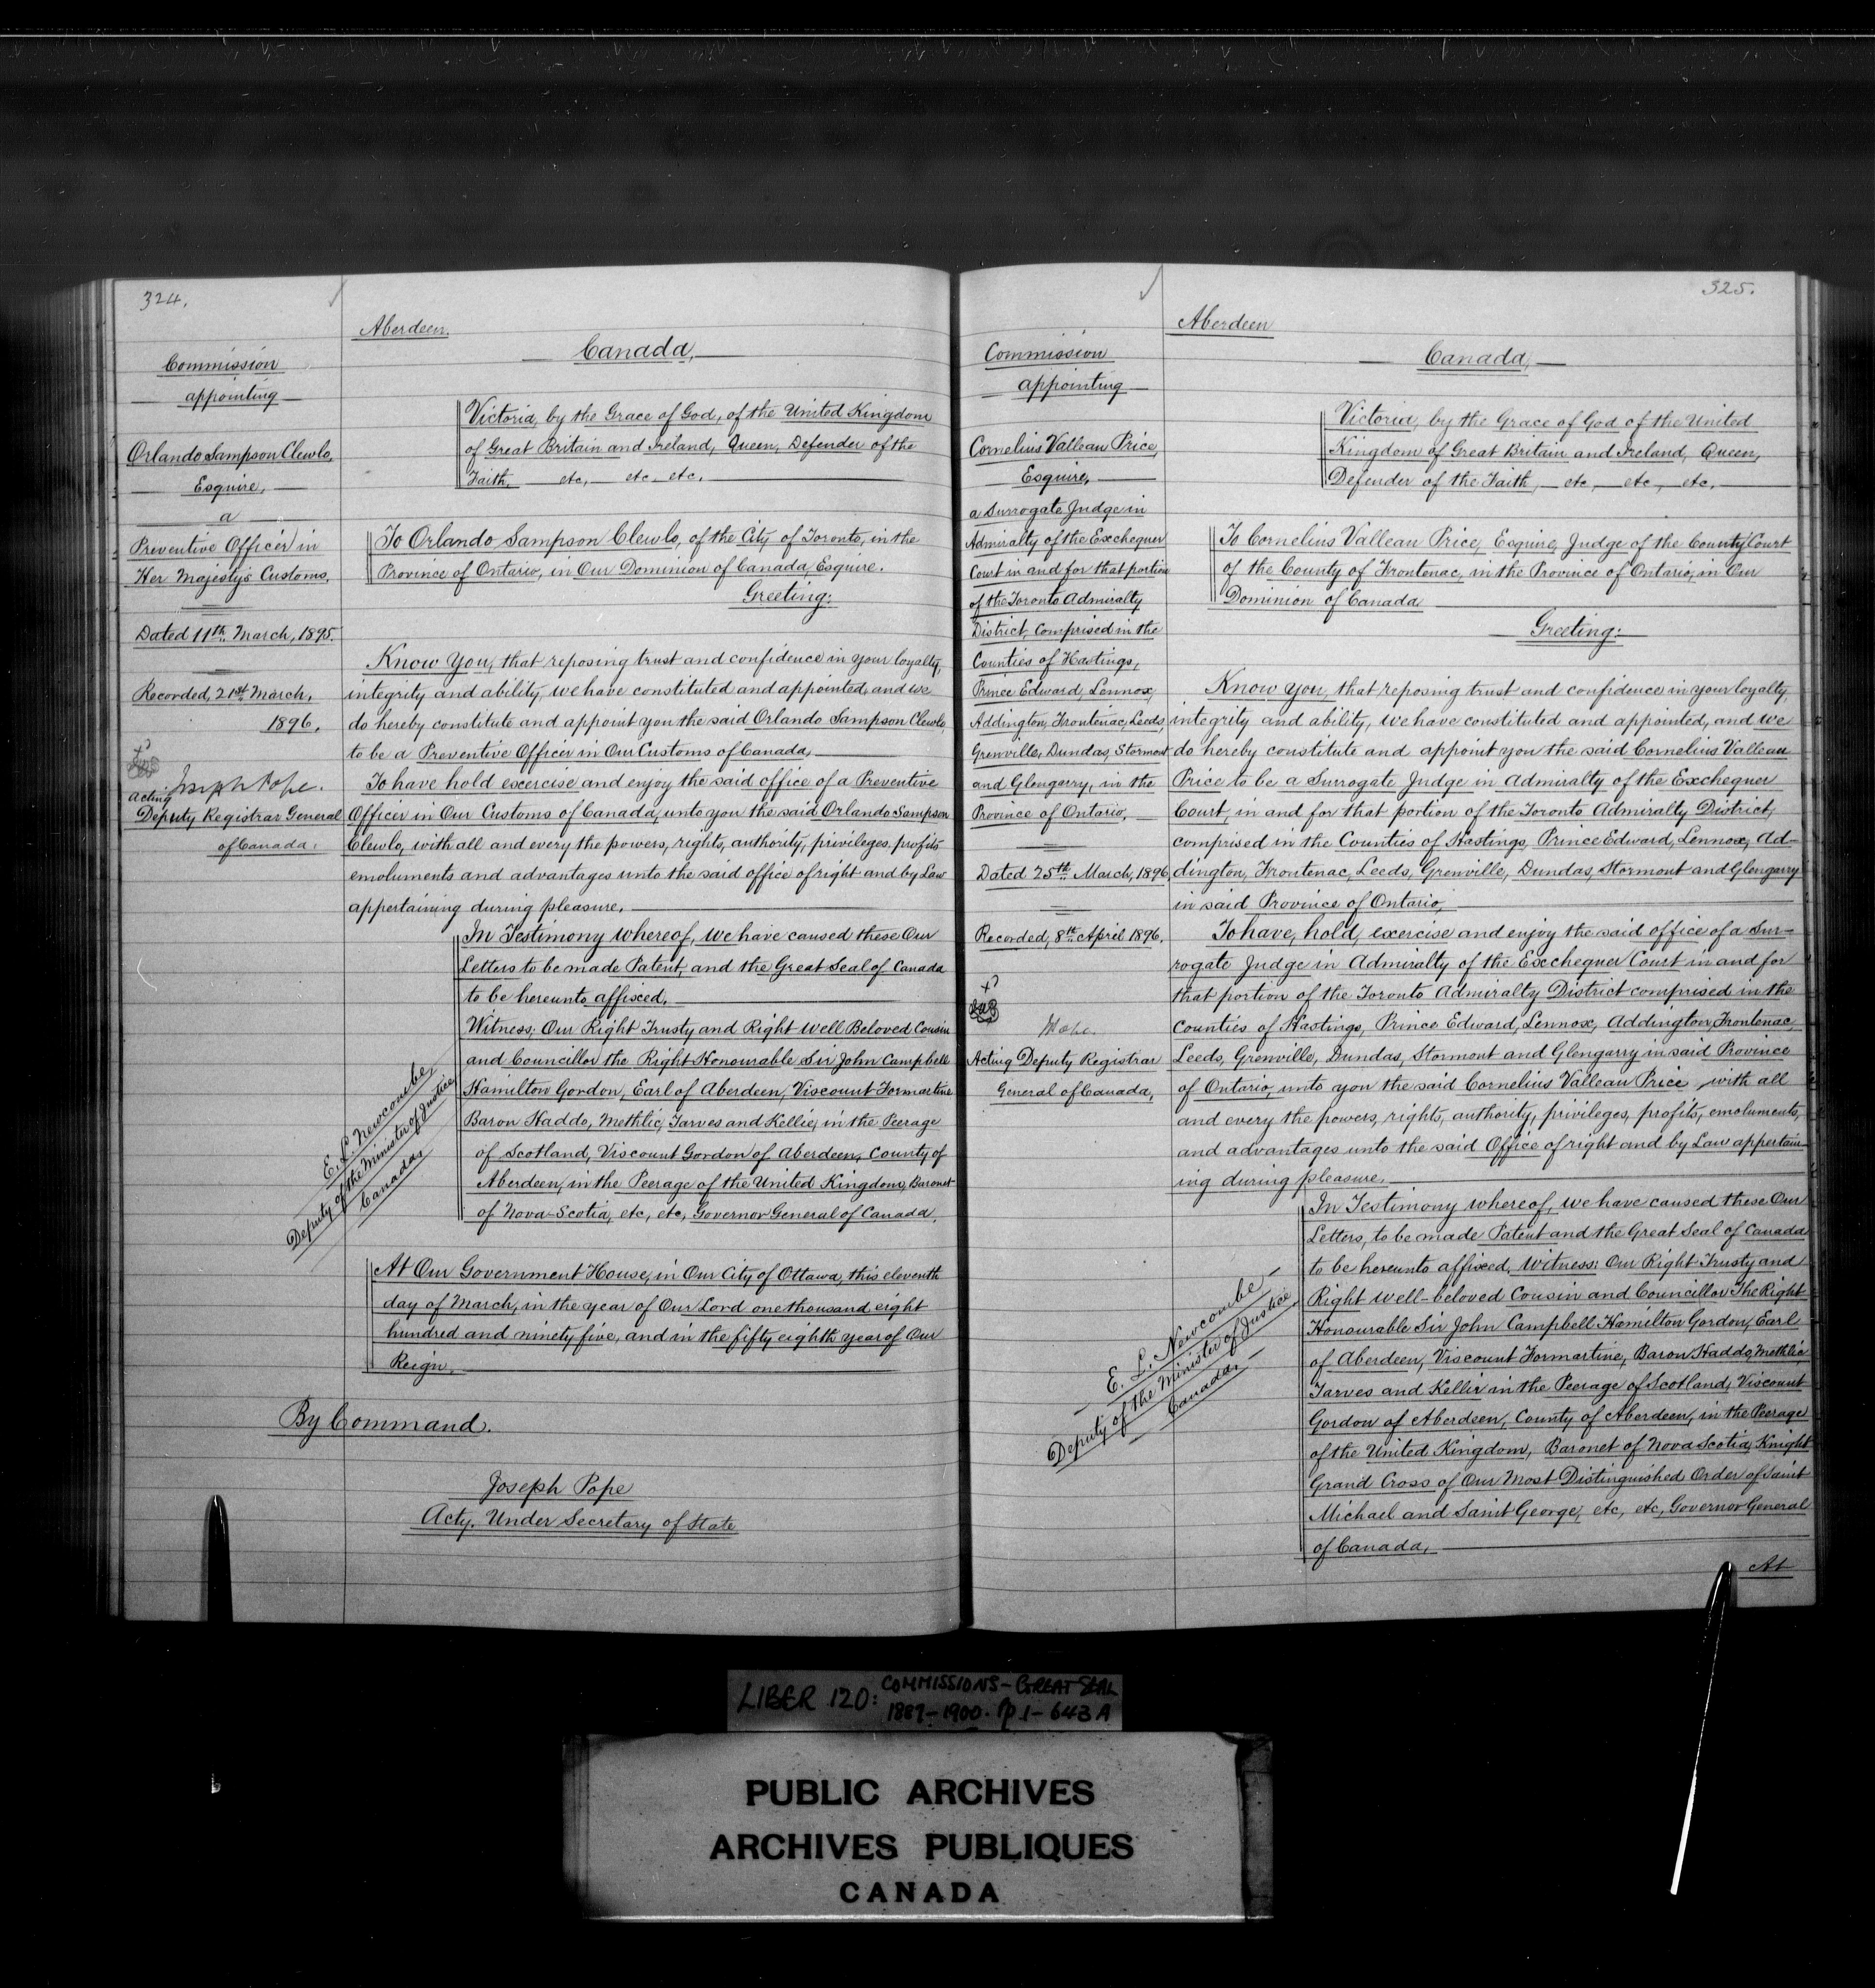 324.
Commission
appointing
Orlando Sampson Clewlo,
Esquire,
a
Preventive Officer in
Her Majesty's Customs.
Dated 11th March, 1895.
Recorded, 21st March,
1896.
Joseph Pope.
Acting
Deputy Registrar General
of Canada.
Aberdeen.
Canada,
Victoria, by the Grace of God, of the United Kingdom
of Great Britain and Ireland, Queen, Defender of the
Faith, etc, etc. etc.
To Orlando Sampson Clewlo, of the City of Toronto, in the
Province of Ontario, in Our Dominion of Canada, Esquire.
Greeting:
Know You, that reposing trust and confidence in your loyalty,
integrity and ability, we have constituted and appointed, and we
do hereby constitute and appoint you the said Orlando Sampson Clewlo,
to be a Preventive Officer in Our Customs of Canada,
To have hold exercise and enjoy the said office of a Preventive
Officer in Our Customs of Canada, unto you the said Orlando Sampson
Clewlo, with all and every the powers, rights, authority, privileges, profits
emoluments and advantages unto the said office of right and by Law
appertaining during pleasure.
In Testimony whereof, we have caused these Our
Letters to be made Patent, and the Great Seal of Canada
to be hereunto affixed.
Witness; Our Right Trusty and Right Well Beloved Cousin
and Councillor the Right Honourable Sir John Campbell
Hamilton Gordon, Earl of Aberdeen, Viscount Formartine
Baron Haddo, Methlic, Tarves and Kellie, in the Peerage
of Scotland, Viscount Gordon of Aberdeen, County of
Aberdeen, in the Peerage of the United Kingdom, Baronet
of Nova-Scotia, etc, etc, Governor General of Canada.
E. L. Newcombe,
Deputy of the Minister of Justice,
Canada,
At Our Government House, in Our City of Ottawa, this eleventh
day of March, in the year of Our Lord one thousand eight
hundred and ninety five, and in the fifty eighth year of Our
Reign.
By Command.
Joseph Pope
Acty. Under Secretary of State
325.
Commission
appointing
Cornelius Valleau Price,
Esquire,
a Surrogate Judge in
Admiralty of the Exchequer
Court in and for that portion
of the Toronto Admiralty
District, comprised in the
Counties of Hastings,
Prince Edward, Lennox,
Addington, Frontenac, Leeds,
Grenville, Dundas, Stormont
and Glengarry, in the
Province of Ontario,
Dated 25th March, 1896,
Recorded, 8th April 1896.
Pope.
Acting Deputy Registrar
General of Canada,
Aberdeen
Canada,
Victoria, by the Grace of God of the United
Kingdom of Great Britain and Ireland, Queen,
Defender of the Faith, etc, etc, etc.
To Cornelius Valleau Price, Esquire, Judge of the County Court
of the County of Frontenac, in the Province of Ontario, in Our
Dominion of Canada
Greeting:
Know you, that reposing trust and confidence in your loyalty,
integrity and ability, we have constituted and appointed, and we
do hereby constitute and appoint you the said Cornelius Valleau
Price to be a Surrogate Judge in Admiralty of the Exchequer
Court, in and for that portion of the Toronto Admiralty District,
comprised in the Counties of Hastings, Prince Edward, Lennox, Ad-
dington, Frontenac, Leeds, Grenville, Dundas, Stormont and Glengarry
in said Province of Ontario,
To have, hold, exercise and enjoy the said office of a Sur-
rogate Judge in Admiralty of the Exchequer Court in and for
that portion of the Toronto Admiralty District comprised in the
Counties of Hastings, Prince Edward, Lennox, Addington, Frontenac
Leeds, Grenville, Dundas, Stormont and Glengarry in said Province
of Ontario, unto you the said Cornelius Valleau Price, with all
and every the powers, rights, authority, privileges, profits, emoluments,
and advantages unto the said Office of right and by Law appertain-
ing during pleasure.
In Testimony whereof, we have caused these Our
Letters, to be made Patent and the Great Seal of Canada
to be hereunto affixed, Witness: Our Right Trusty and
Right well-beloved Cousin and Councillor The Right
Honourable Sir John Campbell Hamilton Gordon, Earl
of Aberdeen, Viscount Formartine, Baron Haddo, Methlic,
Tarves and Kellie in the Peerage of Scotland, Viscount
Gordon of Aberdeen, County of Aberdeen, in the Peerage
of the United Kingdom, Baronet of Nova Scotia, Knight
Grand Cross of Our Most Distinguished Order of Saint
Michael and Saint George, etc, etc, Governor General
of Canada,
At
E. L. Newcombe,
Deputy of the Minister of Justice
Canada,
LIBER 120: COMMISSIONS - GREAT SEAL
1889-1900. Pp 1-643A
PUBLIC ARCHIVES
ARCHIVES PUBLIQUES
CANADA